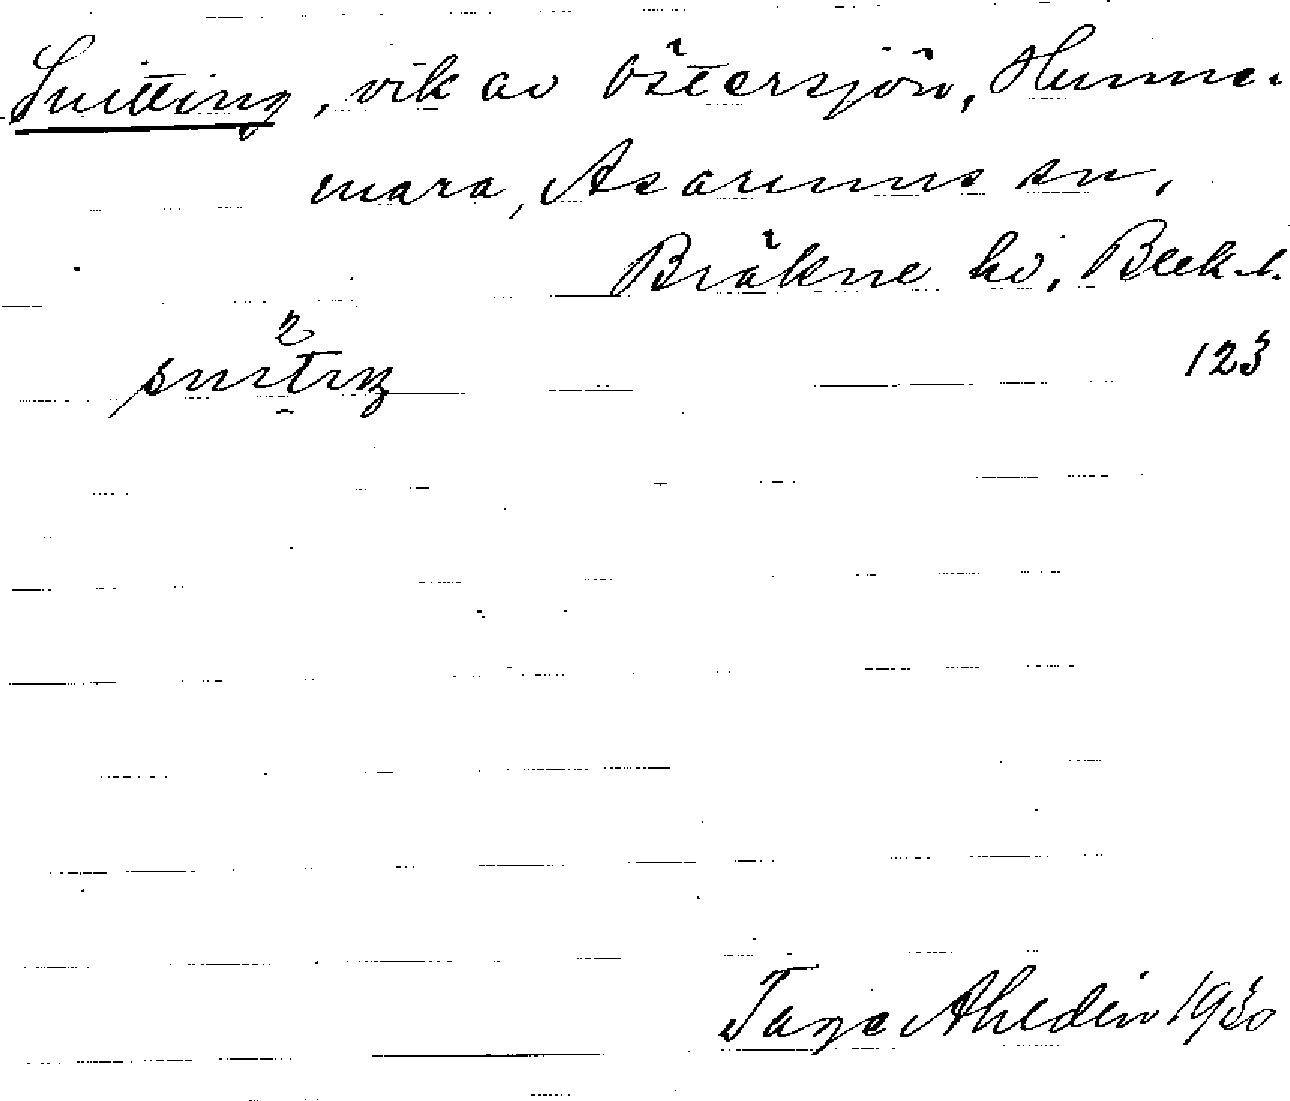 Snitting, vik av Östersjön, Hunne-
mara, Asarums sn,
Bräkne hd, Blek. l.
123
Tage Ahldén 1930